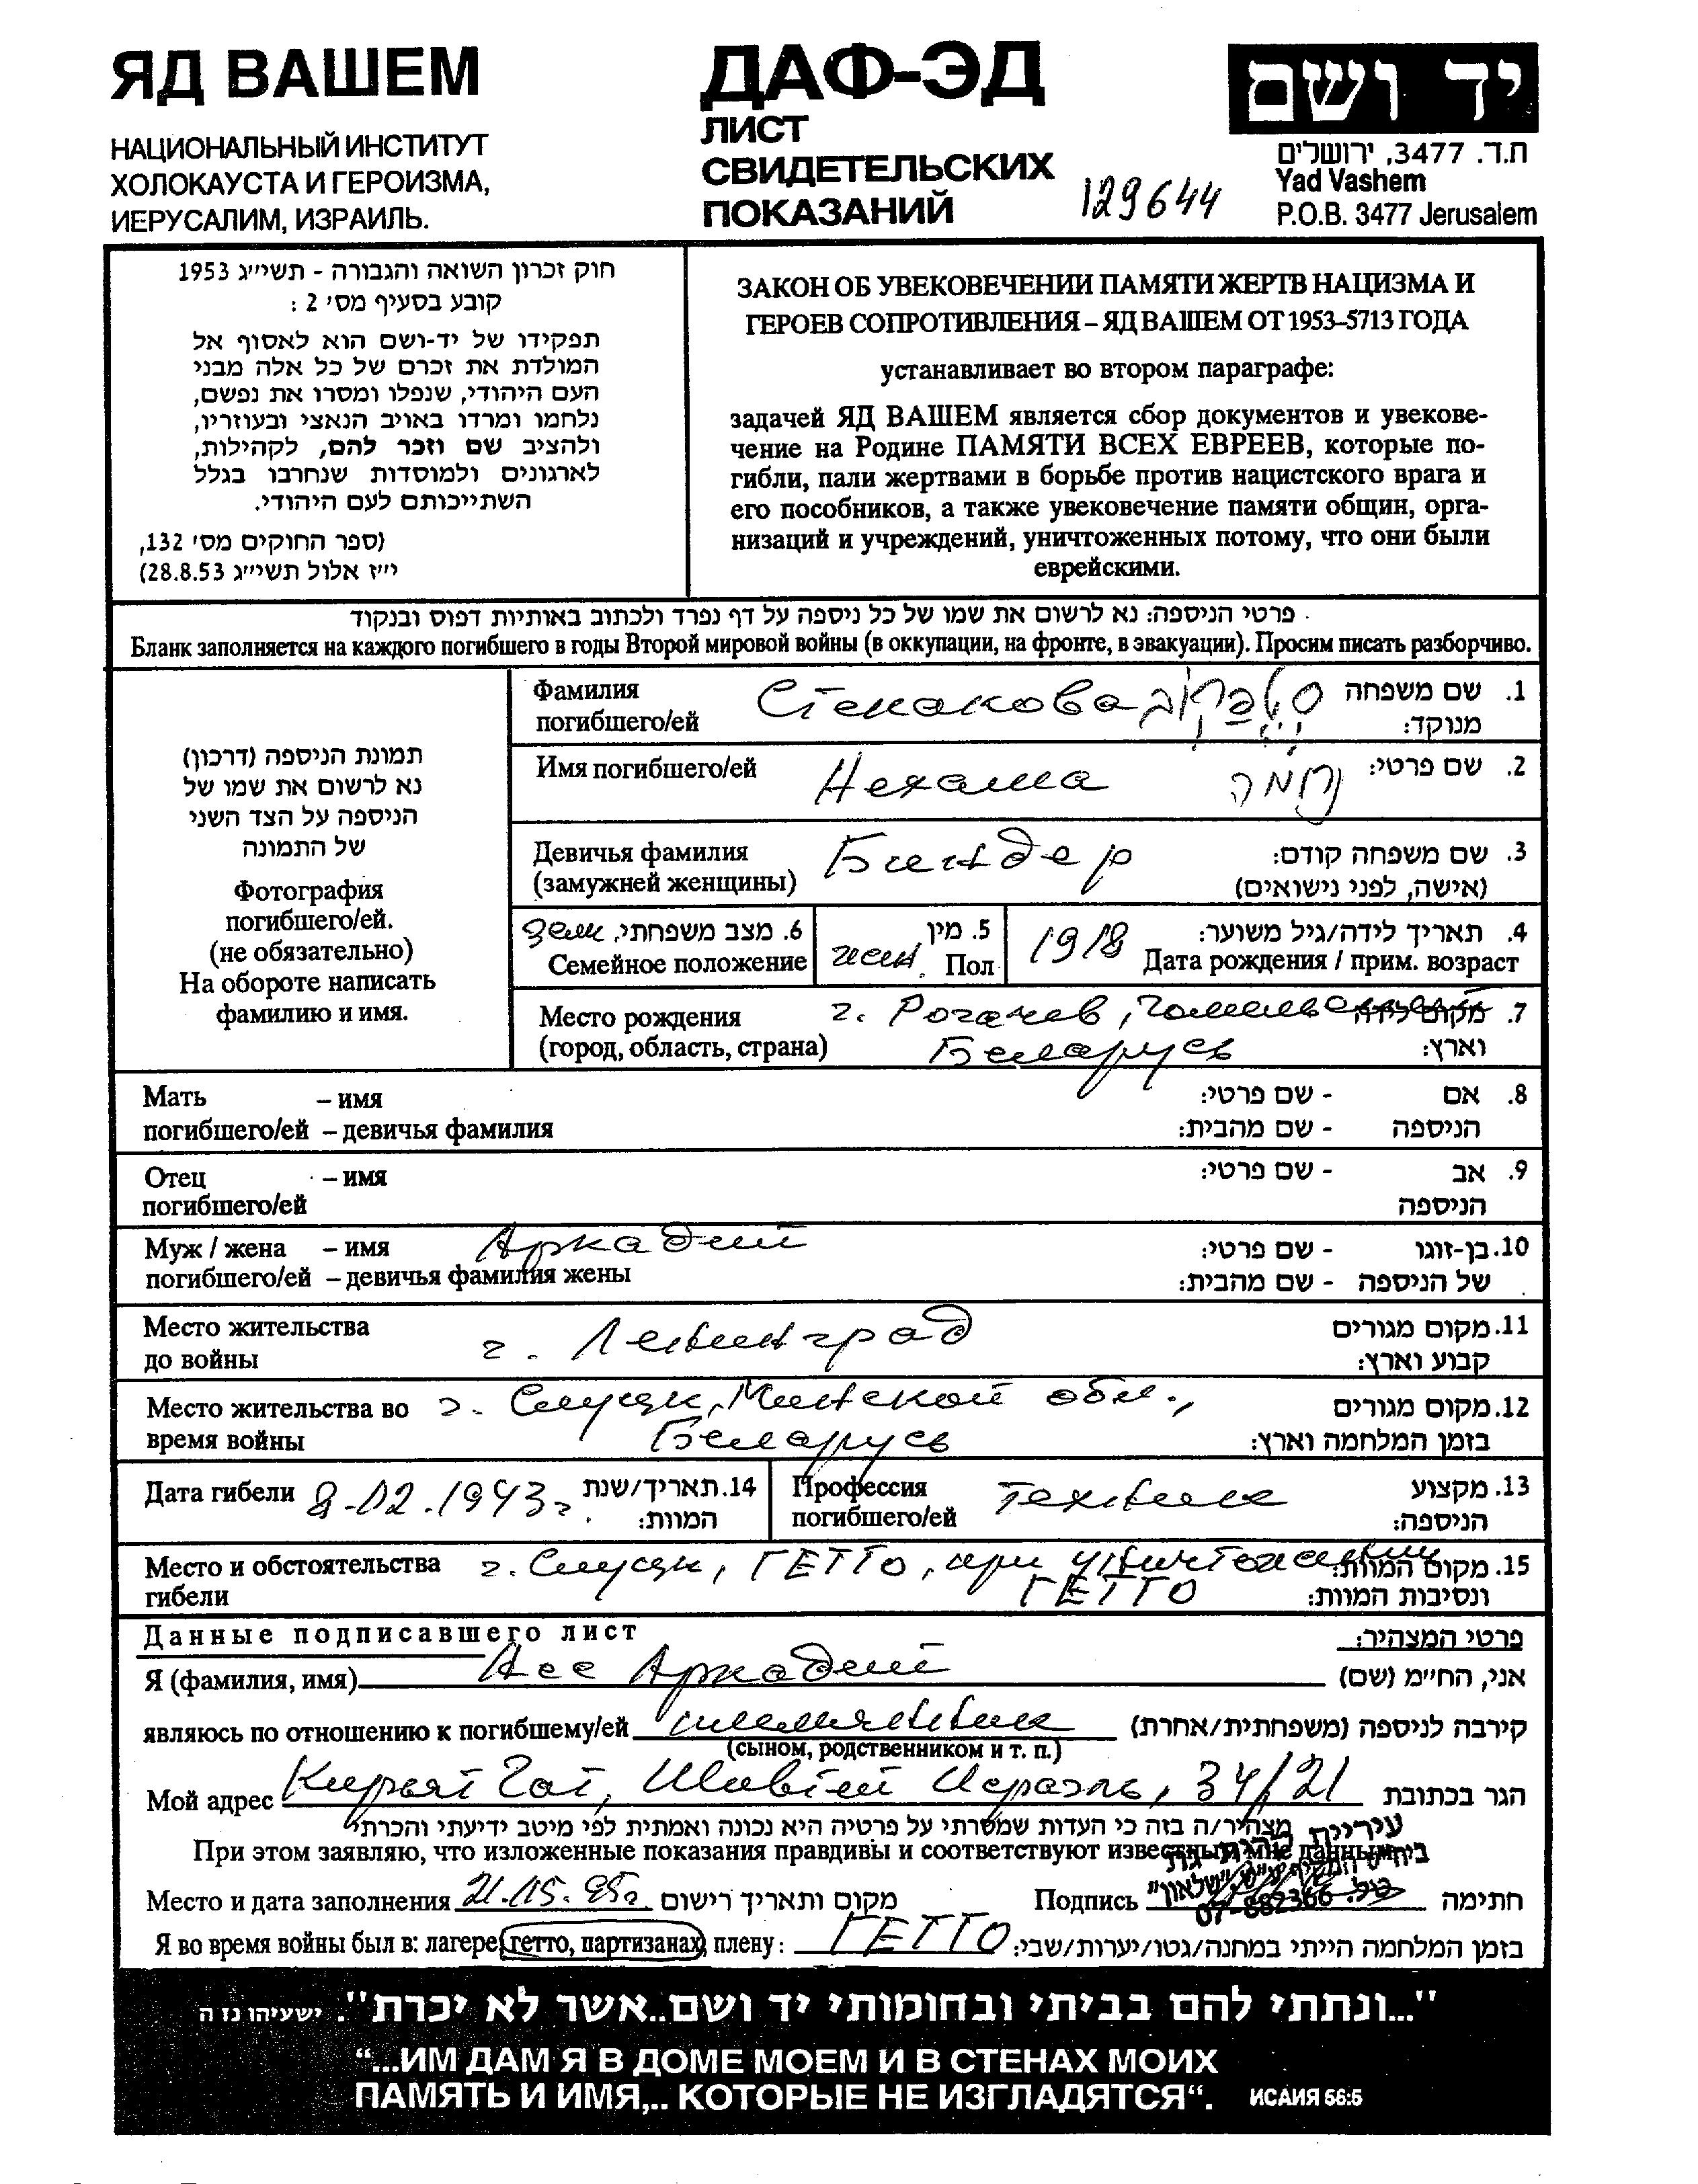 ЯД ВАШЕМ
НАЦИОНАЛЬНЫЙ ИНСТИТУТ
ХОЛОКАУСТА И ГЕРОИЗМА,
ИЕРУСАЛИМ, ИЗРАИЛЬ.
ДАФ-ЭД
ЛИСТ
СВИДЕТЕЛЬСКИХ
ПОКАЗАНИЙ
129644
יד ושם
ת.ד. 3477, ירושלים
Yad Vashem
P.O.B. 3477 Jerusalem
חוק זכרון השואה והגבורה - תשי״ג 1953
קובע בסעיף מס׳ 2 :
תפקידו של יד-ושם הוא לאסוף אל
המולדת את זכרם של כל אלה מבני
העם היהודי, שנפלו ומסרו את נפשם,
נלחמו ומרדו באויב הנאצי ובעוזריו,
ולהציב שם וזכר להם, לקהילות,
לארגונים ולמוסדות שנחרבו בגלל
השתייכותם לעם היהודי.
(ספר החוקים מס׳ 132,
י״ז אלול תשי״ג 28.8.53)
ЗАКОН ОБ УВЕКОВЕЧЕНИИ ПАМЯТИ ЖЕРТВ НАЦИЗМА И
ГЕРОЕВ СОПРОТИВЛЕНИЯ – ЯД ВАШЕМ ОТ 1953–5713 ГОДА
устанавливает во втором параграфе:
задачей ЯД ВАШЕМ является сбор документов и увекове-
чение на Родине ПАМЯТИ ВСЕХ ЕВРЕЕВ, которые по-
гибли, пали жертвами в борьбе против нацистского врага и
его пособников, а также увековечение памяти общин, орга-
низаций и учреждений, уничтоженных потому, что они были
еврейскими.
פרטי הניספה: נא לרשום את שמו של כל ניספה על דף נפרד ולכתוב באותיות דפוס ובנקוד
Бланк заполняется на каждого погибшего в годы Второй мировой войны (в оккупации, на фронте, в эвакуации). Просим писать разборчиво.
תמונת הניספה (דרכון)
נא לרשום את שמו של
הניספה על הצד השני
של התמונה
Фотография
погибшего/ей.
(не обязательно)
На обороте написать
фамилию и имя.
Фамилия Стенакова 1. שם משפחה
погибшего/ей מנוקד:
Имя погибшего/ей Нехама נחמה 2. שם פרטי:
Девичья фамилия Биндер 3. שם משפחה קודם:
(замужней женщины) (אישה, לפני נישואים)
6. מצב משפחתי. зам 5. מין 1918 4. תאריך לידה/גיל משוער:
Семейное положение жен. Пол Дата рождения / прим. возраст
Место рождения г. Рогачев, Гомельской 7. מקום לידה
(город, область, страна) Беларусь וארץ:
Мать – имя 8. אם - שם פרטי:
погибшего/ей – девичья фамилия הניספה - שם מהבית:
Отец – имя 9. אב - שם פרטי:
погибшего/ей הניספה
Муж / жена – имя Аркадий 10. בן-זוגו - שם פרטי:
погибшего/ей – девичья фамилия жены של הניספה - שם מהבית:
Место жительства г. Ленинград 11. מקום מגורים
до войны קבוע וארץ:
Место жительства во г. Слуцк, Минской обл., 12. מקום מגורים
время войны Беларусь בזמן המלחמה וארץ:
Дата гибели 8.02.1943г. 14. תאריך/שנת המוות:
Профессия погибшего/ей Техник 13. מקצוע הניספה:
Место и обстоятельства г. Слуцк, ГЕТТО, при уничтожении 15. מקום המוות:
гибели ГЕТТО ונסיבות המוות:
Данные подписавшего лист פרטי המצהיר:
Я (фамилия, имя) Асс Аркадий אני, הח״מ (שם)
являюсь по отношению к погибшему/ей племянник קירבה לניספה (משפחתית/אחרת)
(сыном, родственником и т. п.)
Мой адрес Кирьят Гат, Шивтей Исраэль, 34/21 הגר בכתובת
מצהיר/ה בזה כי העדות שמסרתי על פרטיה היא נכונה ואמתית לפי מיטב ידיעתי והכרתי
При этом заявляю, что изложенные показания правдивы и соответствуют известным мне данным.
עיריית קרית גת
טל. 07-882366
Место и дата заполнения 21.05.95г. מקום ותאריך רישום Подпись חתימה
Я во время войны был в: лагере, гетто, партизанах, плену: ГЕТТО בזמן המלחמה הייתי במחנה/גטו/יערות/שבי:
"...ונתתי להם בביתי ובחומותי יד ושם..אשר לא יכרת". ישעיהו נז ה
“...ИМ ДАМ Я В ДОМЕ МОЕМ И В СТЕНАХ МОИХ
ПАМЯТЬ И ИМЯ,.. КОТОРЫЕ НЕ ИЗГЛАДЯТСЯ“. ИСАИЯ 56:5